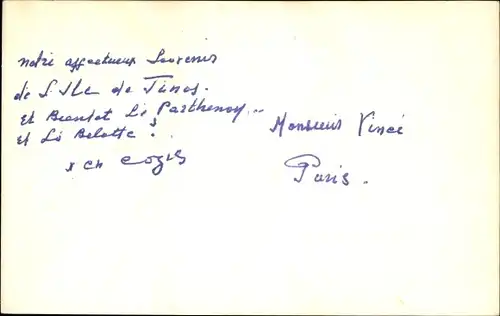 notre affectueux Souvenir
de l'Ile de Tinos.
et Bientot le Parthenon...
et La Belotte!
Monsieur Vinci
Paris.